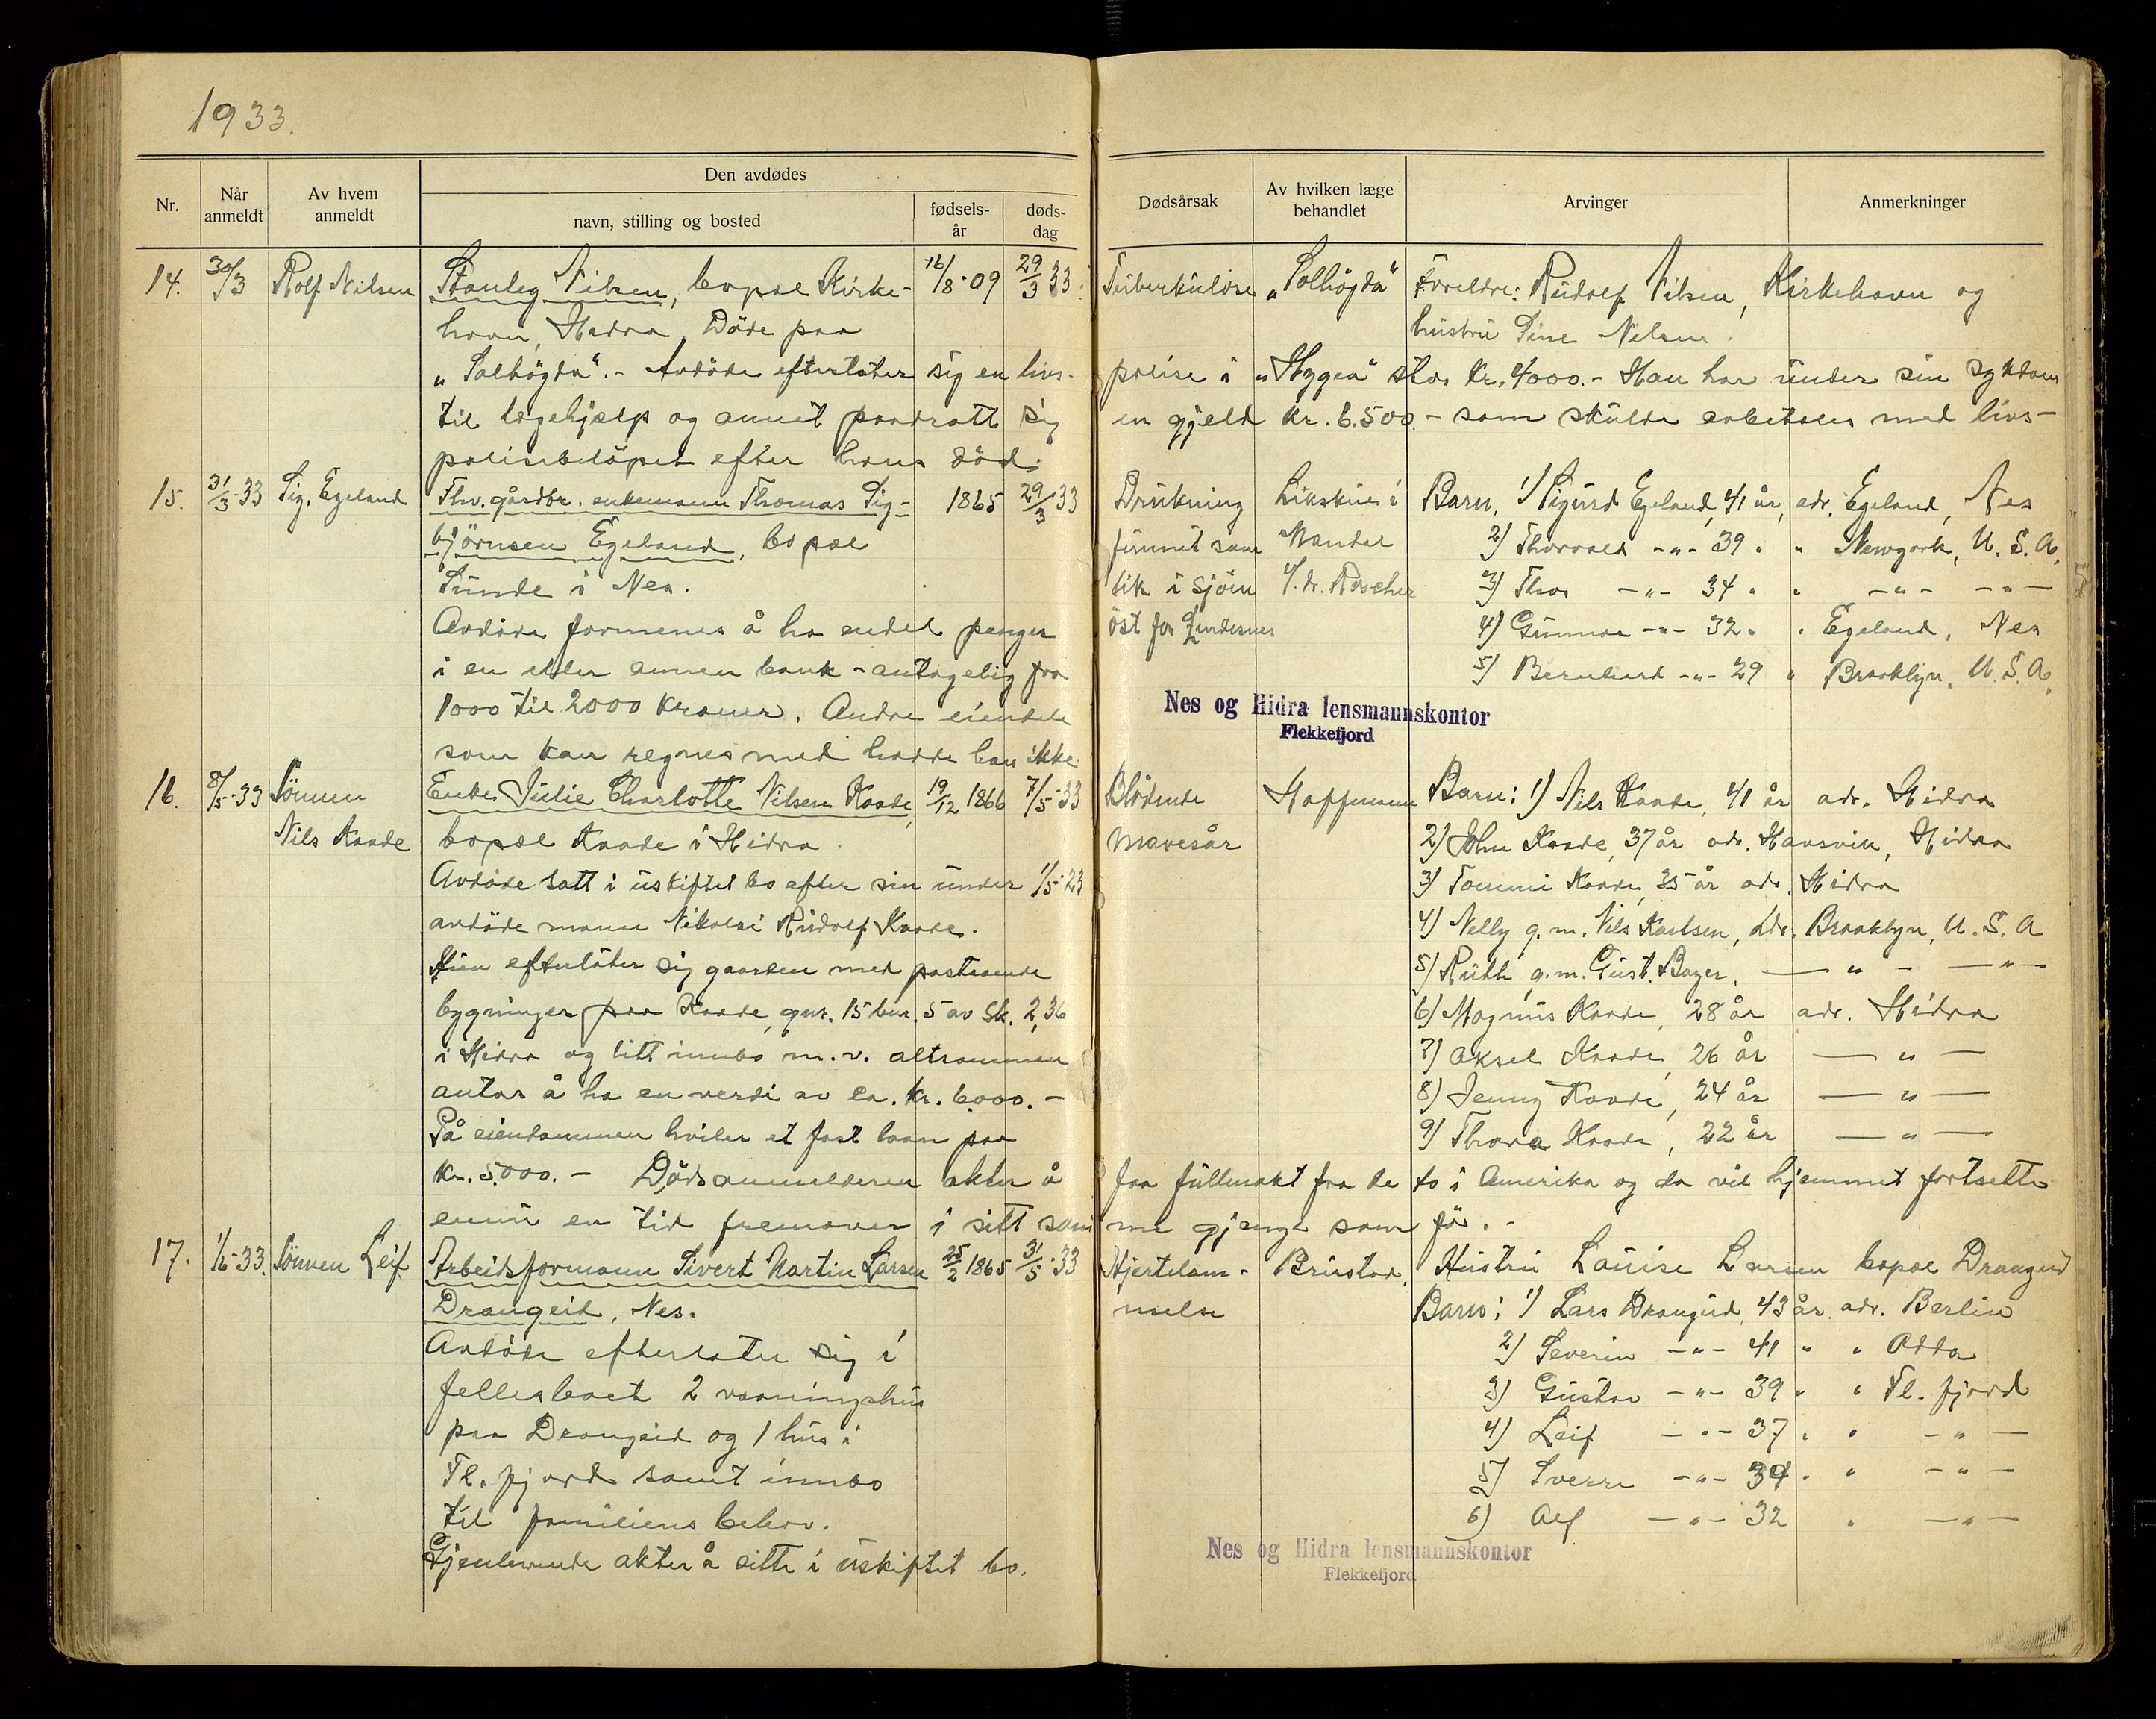 1933.
Nr.
Når anmeldt
Av hvem anmeldt
Den avdødes
navn, stilling og bosted
fødsels-år
døds-dag
Dødsårsak
Av hvilken læge behandlet
Arvinger
Anmerkninger
14. 30/3 Rolf Nilsen Stanley Nilsen, bopæl Kirke- 16/8-09 29/3 33. Tuberkulose „Solhögda" Foreldre: Rudolf Nilsen, Kirkehavn og
havn, Hidra. Döde paa hustru Sine Nilsen.
„Solhögda".- Avdöde efterlater sig en livs- polise i „Hygea" stor kr. 4000.- Han har under sin sykdom
til lægehjælp og annet paadratt sig en gjeld kr. 6.500.- som skulde avbetales med livs-
polisebelöpet efter hans död.
15. 31/3-33 Sig. Egeland Fhv. gårdbr. enkemann Thomas Sig- 1865 29/3 33 Drukning Likskue i Barn. 1) Sigurd Egeland, 41 år, adr. Egeland, Nes
björnsen Egeland, bopæl funnet som Mandal 2) Thorvald -"- 39 " " Newyork, U.S.A.
Sunde i Nes. lik i sjöen v/ dr. 3) Thor -"- 34 " " -"- -"-
Avdöde formenes å ha endel penger öst for Lindesnes 4) Gunnar -"- 32 " " Egeland, Nes
i en eller annen bank - antagelig fra 5) Bernhard -"- 29 " Brooklyn, U.S.A.
1000 til 2000 kroner. Andre eiendele
Nes og Hidra lensmannskontor
Flekkefjord
som kan regnes med hadde han ikke.
16. 8/5-33 Sönnen Enke Julie Charlotte Nilsen Kaade, 19/12 1866 7/5-33 Blödende Hoffmann Barn: 1) Nils Kaade, 41 år adr. Hidra
Nils Kaade bopæl Kaade i Hidra. mavesår 2) John Kaade, 37 år adr. Hausvik, Hidra
Avdöde satt i uskiftet bo efter sin under 1/5-23 3) Tommi Kaade, 35 år adr. Hidra
avdöde mann Nikolai Rudolf Kaade. 4) Nelly g.m. Nils Karlsen, adr. Brooklyn, U.S.A
Hun efterlater sig gaarden med påstående 5) Ruth g.m. Gust. -"- -"-
bygninger paa Kaade, gnr. 15 bnr. 5 av Sk. 2,36 6) Magnus Kaade, 28 år adr. Hidra
i Hidra og litt innbo m.v. altsammen 7) Aksel Kaade, 26 år -"-
antas å ha en verdi av ca. kr. 6000.- 8) Jenny Kaade, 24 år -"-
På eiendommen hviler et fast laan paa 9) Thora Kaade, 22 år -"-
kr. 5000.- Dödsanmelderen akter å faa fullmakt fra de to i Amerika og da vil hjemmet fortsette
ennu en tid fremover i sitt samme gjenge som för.-
17. 1/6-33. Sönnen Leif Arbeidsformann Sivert Martin Larsen 25/2 1865 31/5-33 Hjertelam- Brustad. Hustru Louise Larsen bopæl Drangeid
Drangeid, Nes. melse Barn: 1) Lars Drangeid, 43 år adr. Berlin
Avdöde efterlater sig i 2) Severin -"- 41 " " Odda
fellesboet 2 vaaningshus 3) Gustav -"- 39 " " Fl. fjord
paa Drangeid og 1 hus i 4) Leif -"- 37 " " -"-
Fl. fjord samt innbo 5) Sverre -"- 34 " " -"-
til familiens behov. 6) Alf -"- 32 " -"-
Gjenlevende akter å sitte i uskiftet bo.
Nes og Hidra lensmannskontor
Flekkefjord